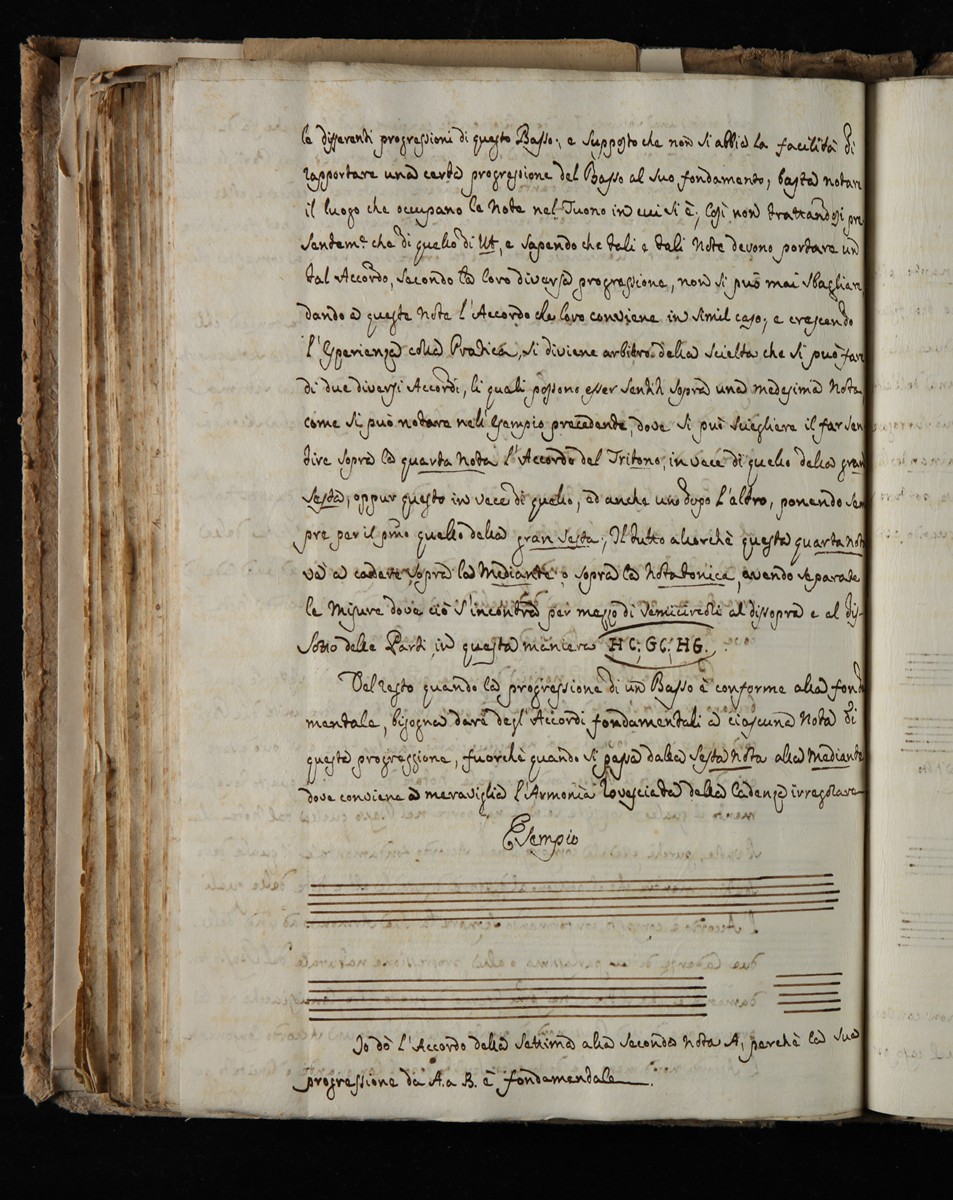 le differenti progressioni di questo Basso; e supposto che non si abbia la facilità di
rapportare una certa progressione del Basso al suo fondamento, basta notare
il luogo che occupano le Note nel Tuono in cui si è; Così non trattandosi pre
sentem.e che di quello di Ut, e sapendo che tali e tali Note devono portare un
tal Accordo, secondo la loro diversa progressione, non si può mai sbagliare
dando a queste Note l'Accordo che loro conviene in simil caso; e crescendo
l'Esperienza colla Pratica, si diviene arbitro della scielta che si può fare
di due diversi Accordi, li quali possono esser sentiti sopra una medesima Nota
come si può notare nell'Esempio precedente, dove si può sciegliere il far sen
tire sopra la quarta nota l'Accordo del Tritono, in vece di quello della gran
Sesta, oppur questo in vece di quello, ed anche uno dopo l'altro, ponendo sem
pre per il pmo quello della gran sesta; Il tutto allorchè questa quarta nota
va a cadere sopra la Mediante o sopra la Nota tonica, avendo separate
le Misure dove ciò s'incontra per mezzo di semicircoli al dissopra e al dis-
sotto delle Parti in questa maniera H C; G C; H G.
Del resto quando la progressione di un Basso è conforme alla fonda
mentale, bisogna dare degl'Accordi fondamentali a ciascuna Nota di
questa progressione, fuorchè quando si passa dalla Sesta Nota alla Mediante
dove conviene a meraviglia l'Armonia rovesciata della Cadenza irregolare
Esempio
Io dò l'Accordo della Settima alla seconda nota A, perchè la sua
progressione da A. a B. è fondamentale.